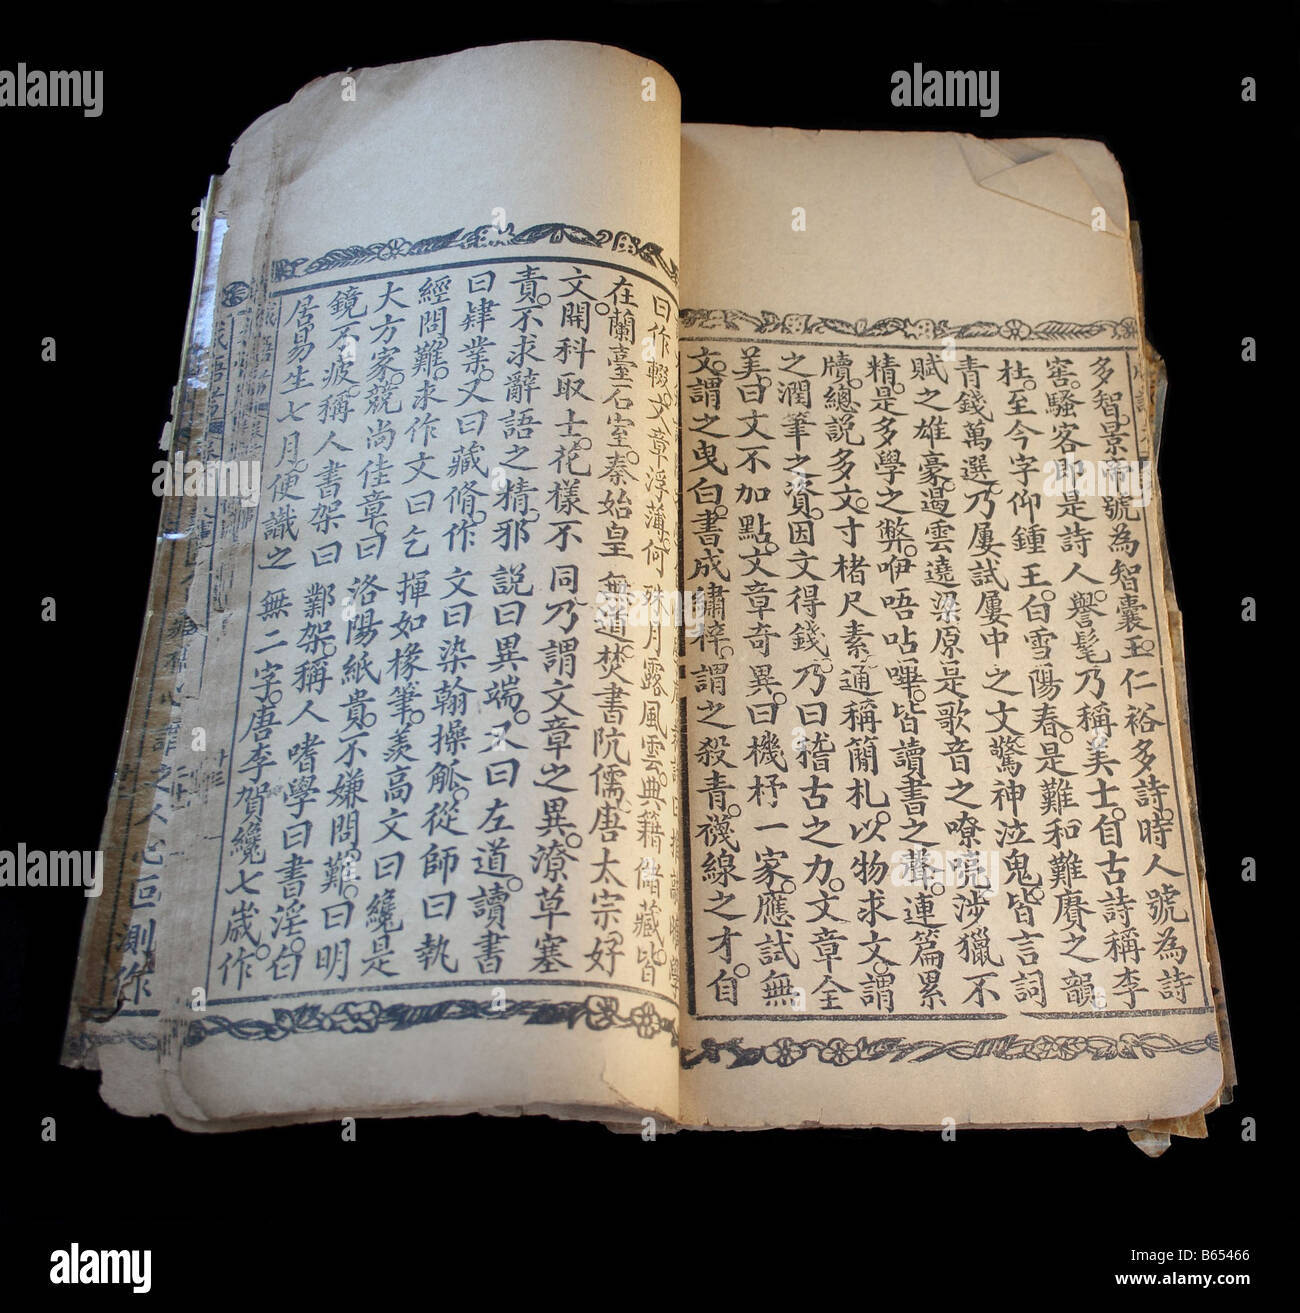 多智。景帝號為智囊。王仁裕多詩。時人號為詩
窖。騷客即是詩人。譽髦乃稱美士。自古詩稱李
杜。至今字仰鍾王。白雪陽春。是難和難賡之韻
青錢萬選。乃屢試屢中之文。驚神泣鬼。皆言詞
賦之雄豪。遏雲遶梁。原是歌音之嘹喨。涉獵不
精。是多學之弊。咿唔呫嗶。皆讀書之聲。連篇累
牘。總說多文。寸楮尺素。通稱簡札。以物求文。謂
之潤筆之資。因文得錢。乃曰稽古之力。文章全
美。曰文不加點。文章奇異。曰機杼一家。應試無
文。謂之曳白。書成繡梓。謂之殺青。襪線之才。自
曰作輟。文章浮薄。何殊月露風雲。典籍儲藏。皆
在蘭臺石室。秦始皇無道。焚書阬儒。唐太宗好
文。開科取士。花樣不同。乃謂文章之異。潦草塞
責。不求辭語之精。邪說曰異端。又曰左道。讀書
曰肄業。又曰藏脩。作文曰染翰操觚。從師曰執
經問難。求作文曰乞揮如椽筆。羨高文曰纔是
大方家。競尚佳章。曰洛陽紙貴。不嫌問難。曰明
鏡不疲。稱人書架曰鄴架。稱人嗜學曰書淫。白
居易生七月。便識之無二字。唐李賀纔七歲。作
alamy
Image ID: B65466
www.alamy.com